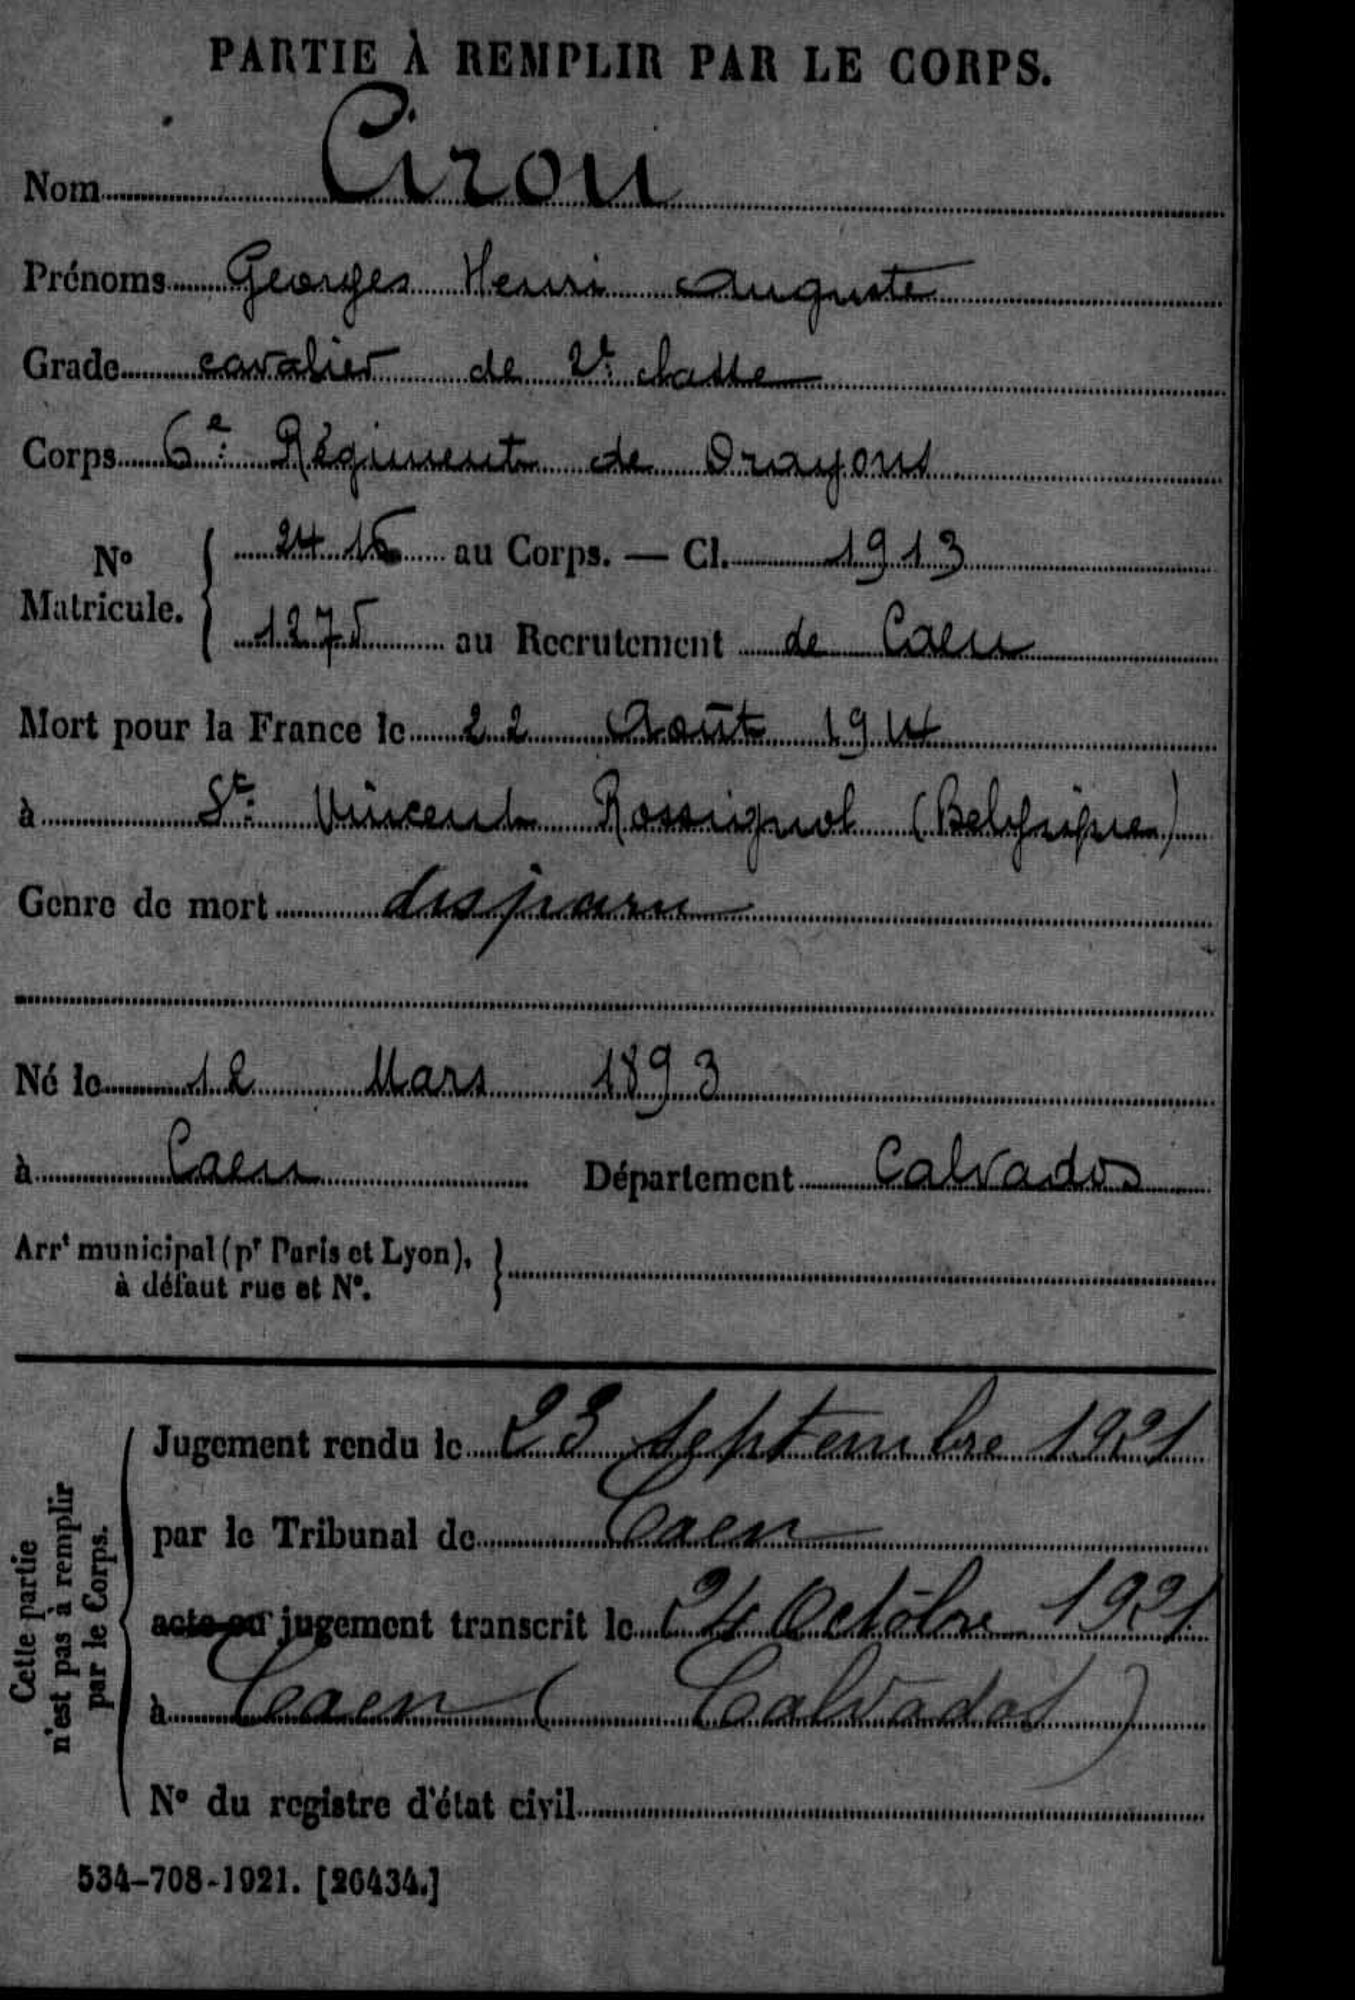 PARTIE À REMPLIR PAR LE CORPS.
Nom Cirou
Prénoms Georges Henri Auguste
Grade cavalier de 2e classe
Corps 6e Régiment de Dragons
No Matricule. 2416 au Corps. — Cl. 1913
1275 au Recrutement de Caen
Mort pour la France le 22 Août 1914
à St Vincent Rossignol (Belgique)
Genre de mort disparu
Né le 12 Mars 1893
à Caen Département Calvados
Arrt municipal (pr Paris et Lyon),
à défaut rue et No.
Cette partie
n'est pas à remplir
par le Corps.
Jugement rendu le 23 septembre 1921
par le Tribunal de Caen
acte ou jugement transcrit le 24 Octobre 1921
à Caen (Calvados)
No du registre d'état civil
534-708-1921. [26434.]